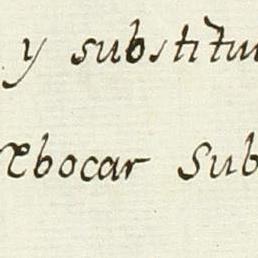 y substitui
rebocar Sub